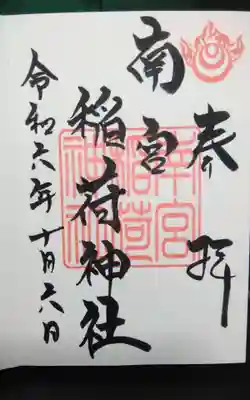 奉拝
南宮
稲荷神社
令和六年十月六日
南宮稲荷神社